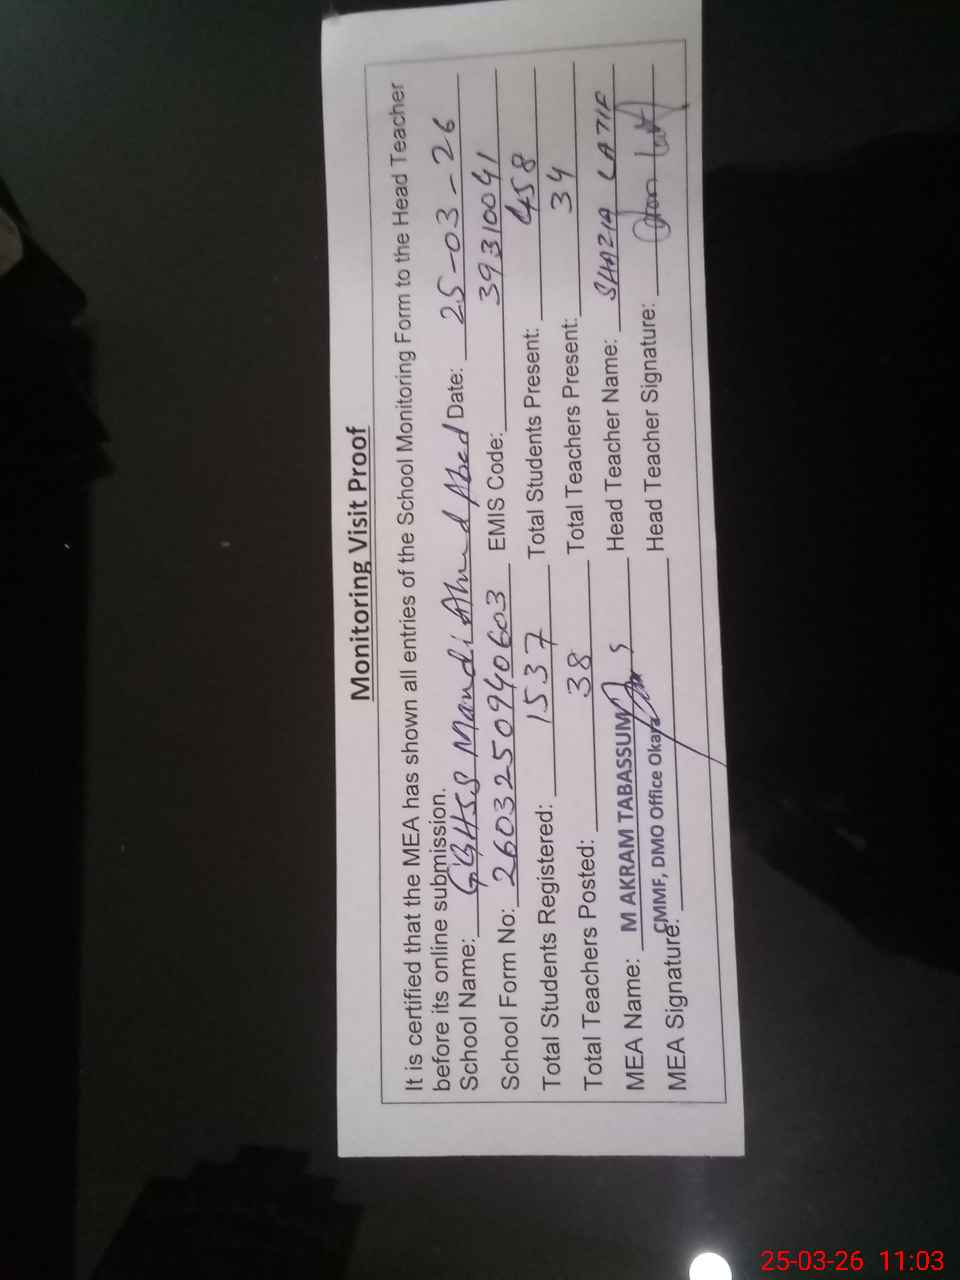 Monitoring Visit Proof
It is certified that the MEA has shown all entries of the School Monitoring Form to the Head Teacher
before its online submission.
School Name: GGHSS Mandi Ahmed Abad Date: 25-03-26
School Form No: 260325094060 3 EMIS Code: 39310041
Total Students Registered: 1537 Total Students Present: 458
Total Teachers Posted: 38 Total Teachers Present: 34
MEA Name: M AKRAM TABASSUM Head Teacher Name: SHAZIA LATIF
CMMF, DMO Office Okara
MEA Signature: Head Teacher Signature:
25-03-26 11:03